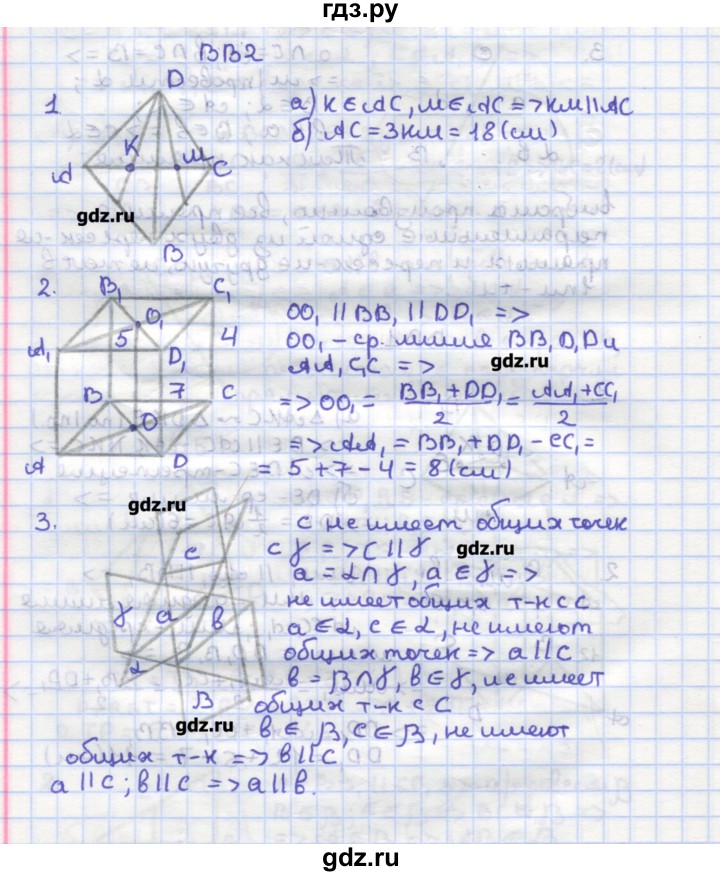 гдз.ру
ВВ2
1.
D
K
M
A
C
B
а) K ∈ AC, M ∈ AC => KM || AC
б) AC = 3KM = 18 (см)
gdz.ru
2.
B₁
C₁
O₁
5
4
A₁
D₁
7
B
C
O
A
D
OO₁ || BB₁ || DD₁ =>
OO₁ – ср. линия BB₁D₁D и
gdz.ru
AA₁C₁C =>
=> OO₁ = BB₁ + DD₁ / 2 = AA₁ + CC₁ / 2
=> AA₁ = BB₁ + DD₁ – CC₁ =
= 5 + 7 – 4 = 8 (см)
gdz.ru
3.
c
γ
a
b
α
β
c не имеет общих точек
с γ => c || γ.
gdz.ru
a = α ∩ γ, a ∈ γ =>
не имеет общих т-к с c
a ∈ α, c ∈ α, не имеют
общих точек => a || c
b = β ∩ γ, b ∈ γ, не имеет
gdz.ru
общих т-к с c
b ∈ β, c ∈ β, не имеют
общих т-к => b || c
a || c; b || c => a || b.
gdz.ru